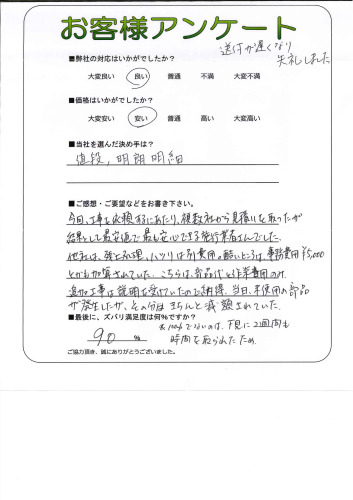 お客様アンケート
送付が遅くなり
失礼しました
■弊社の対応はいかがでしたか？
大変良い 良い 普通 不満 大変不満
■価格はいかがでしたか？
大変安い 安い 普通 高い 大変高い
■当社を選んだ決め手は？
値段，明朗明細
■ご感想・ご要望などをお書き下さい。
今回、工事を依頼するにあたり、複数社から見積りを取ったが
結果として最安値で最も安心できる発行業者さんでした。
他社は、残土処理、ハツリは別費用。酷いところは、事務費用￥5,000
とかも加算されていた。こちらは、部品代と作業費用のみ。
追加工事は説明も受けていたので納得。当日、未使用の部品
が発生したが、その分はきちんと減額されていた。
■最後に、ズバリ満足度は何％ですか？
90 ％
※100%でないのは、下見に2回間も
時間を取られたため
ご協力頂き、誠にありがとうございました。